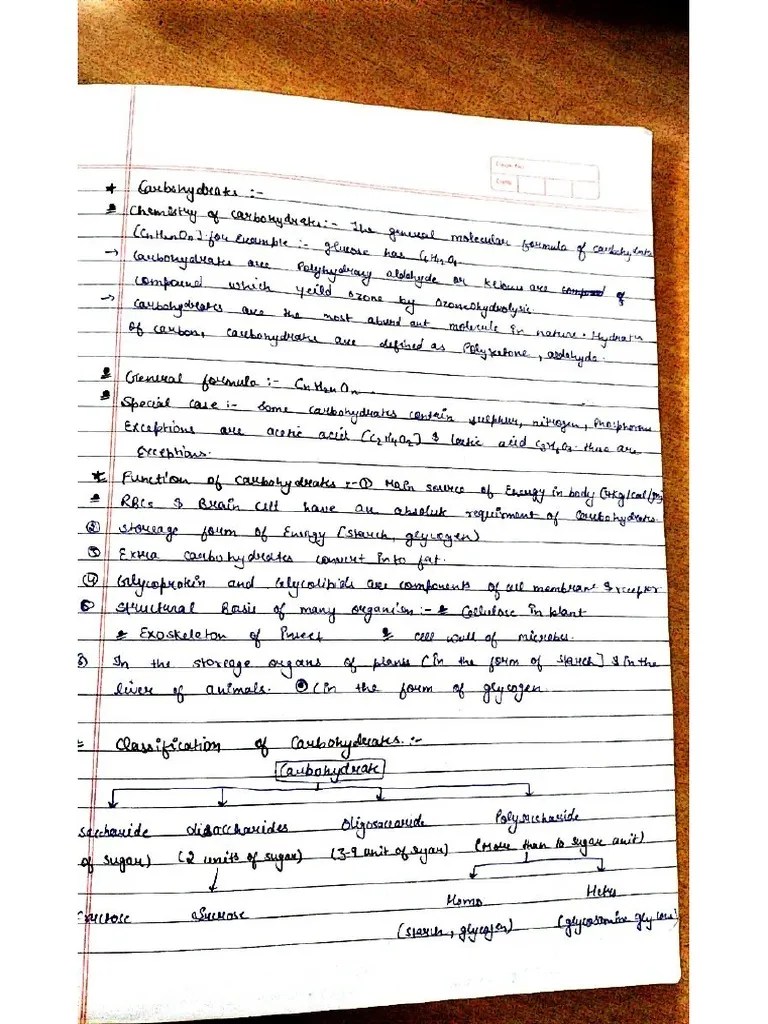 * Carbohydrates :-
Chemistry of carbohydrates :- The general molecular formula of carbohydrates
(CnH2nOn) for example :- glucose has C6H12O6
→ Carbohydrates are Polyhydroxy aldehyde or Ketons are of
compound which yeild ozone by ozonohydrolysic.
→ Carbohydrates are the most abund ant molecule in nature. Hydrates
of carbon, carbohydrate are defined as Polyketone, aldehyde.
General formula :- CnH2nOn.
Special case :- Some carbohydrates contain sulpher, nitrogen, Phosphorus
Exceptions are acetic acid [C2H4O2] & lactic acid C3H6O3 these are
Exceptions.
* Function of carbohydrates :- ① Main source of Energy in body
RBCs & Brain cell have an absolute requirment of carbohydrates.
② Storeage form of Energy [starch, glycogen]
③ Extra carbohydrates convert into fat.
④ Glycoprotein and Glycolipids are components of cell membrane & receptor
⑤ Structural Basis of many organism :- Cellulose in plant
Exoskeleton of Insect cell wall of microbes.
In the storeage organs of plants [in the form of starch] & in the
liver of animals. (in the form of glycogen
Classification of Carbohydrates. :-
Carbohydrate
saccharide disaccharides Oligosaccaride Polysaccharide
of sugar) (2 units of sugar) (3-9 unit of sugar) (More than 10 sugar unit)
Sucrose Homo Hetro
(starch, glycogen)